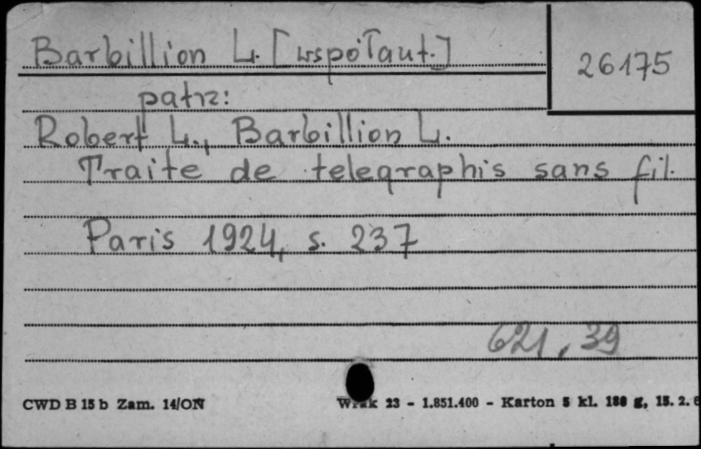 Barbillion L. [współaut.]
26175
patrz:
Robert L., Barbillion L.
Traite de telegraphis sans fil.
Paris 1924, s. 237
621,39
CWD B 15 b Zam. 14/ON
23 - 1.851.400 - Karton 5 kl. 180 g, 15. 2.